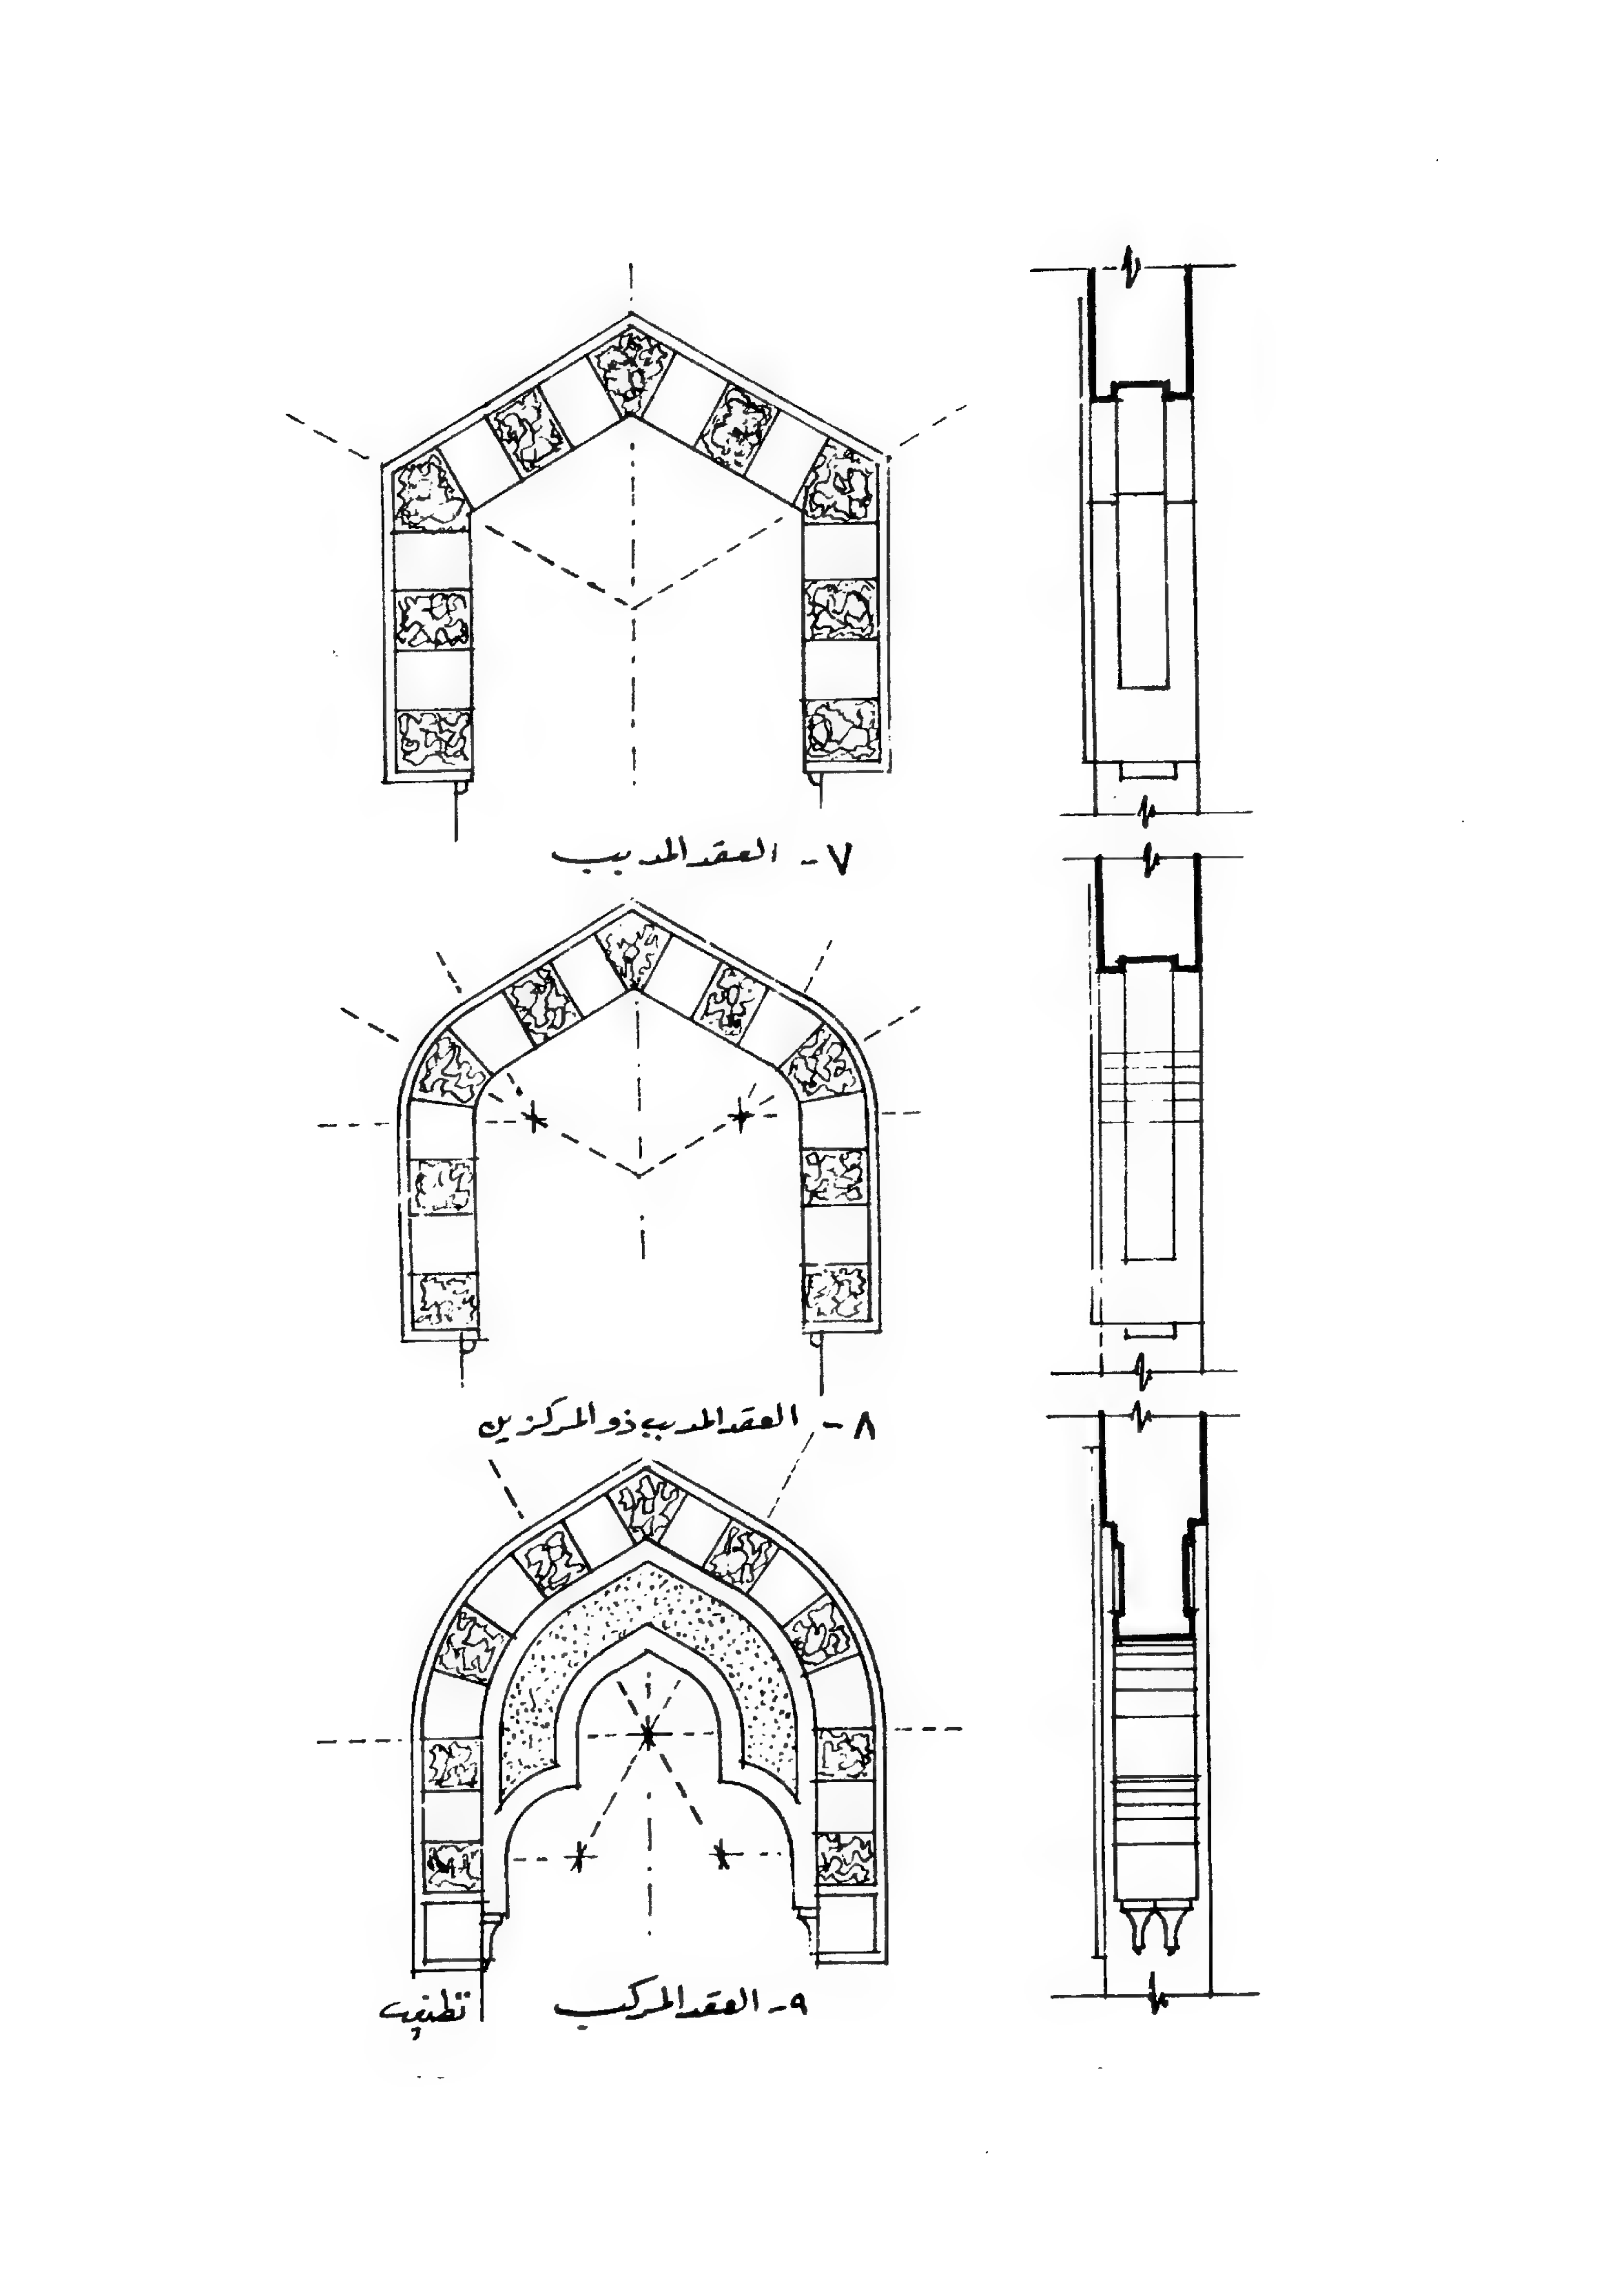 ٧- العقد المدبب
٨- العقد المدبب ذو المركزين
٩- العقد المركب
تطنيب